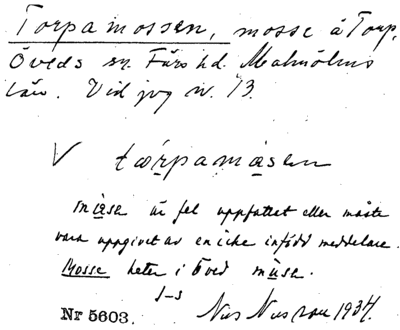 Torpamossen, mosse å Torp,
Öveds sn. Färs hd. Malmöhus
län. Vid jvg n. 13.
V tœrpamåsen
måsa är fel uppfattet eller måste
vara uppgivet av en icke infödd meddelare.
Mosse heter i Öved måsa.
J-s
Nr 5603. Nils Nilsson 1934.